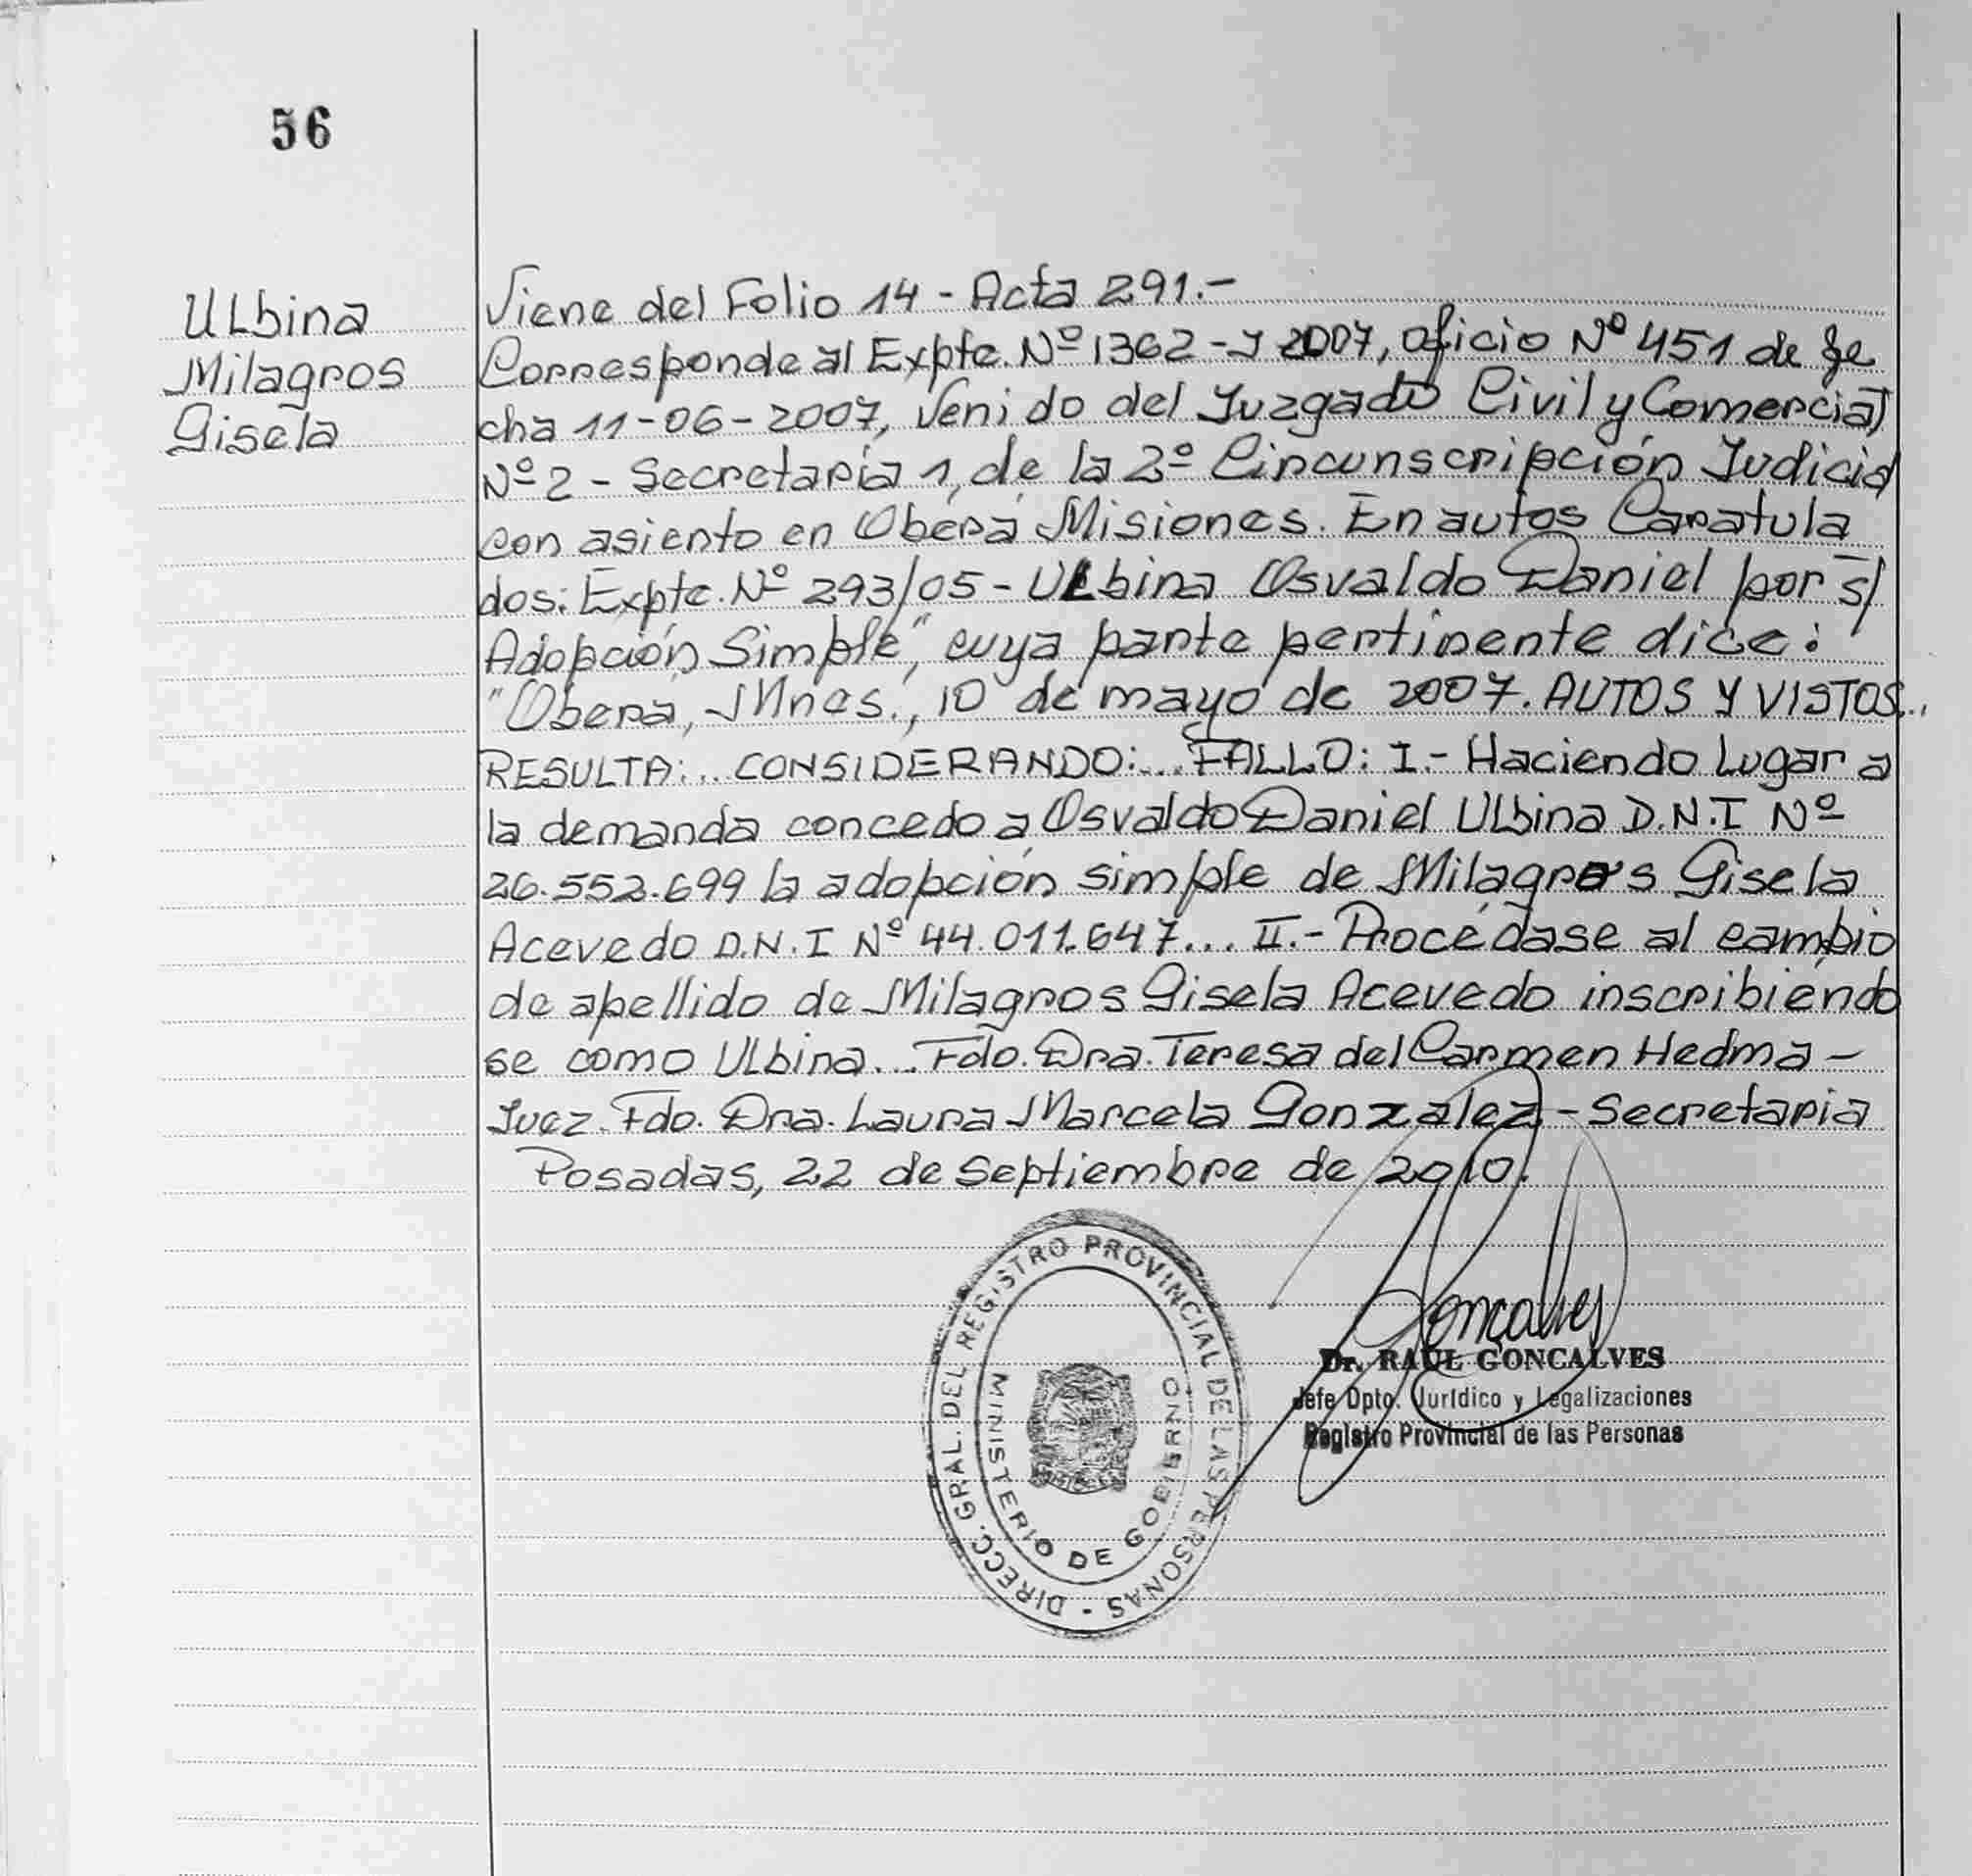 56
Ulbina
Milagros
Gisela
Viene del Folio 14 - Acta 291.-
Corresponde al Expte. Nº 1362-J 2007, oficio Nº 451 de fe
cha 11-06-2007, venido del Juzgado Civil y Comercial
Nº 2 - Secretaría 1, de la 2º Circunscripción Judicial
con asiento en Oberá Misiones. En autos Caratula
dos: Expte. Nº 293/05 - Ulbina Osvaldo Daniel por s/
Adopción Simple", cuya parte pertinente dice:
"Oberá, Mnes., 10 de mayo de 2007. AUTOS Y VISTOS...
RESULTA:... CONSIDERANDO:... FALLO: I.- Haciendo Lugar a
la demanda concedo a Osvaldo Daniel Ulbina D.N.I Nº
26.552.699 la adopción simple de Milagros Gisela
Acevedo D.N.I Nº 44.011.647... II.- Procédase al cambio
de apellido de Milagros Gisela Acevedo inscribiendo
se como Ulbina... Fdo. Dra. Teresa del Carmen Hedma -
Juez. Fdo. Dra. Laura Marcela Gonzalez - Secretaria
Posadas, 22 de Septiembre de 2010.
DIRECC. GRAL. DEL REGISTRO PROVINCIAL DE LAS PERSONAS -
MINISTERIO DE GOBIERNO
Goncalves
Dr. RAUL GONCALVES
Jefe Dpto. Jurídico y Legalizaciones
Registro Provincial de las Personas